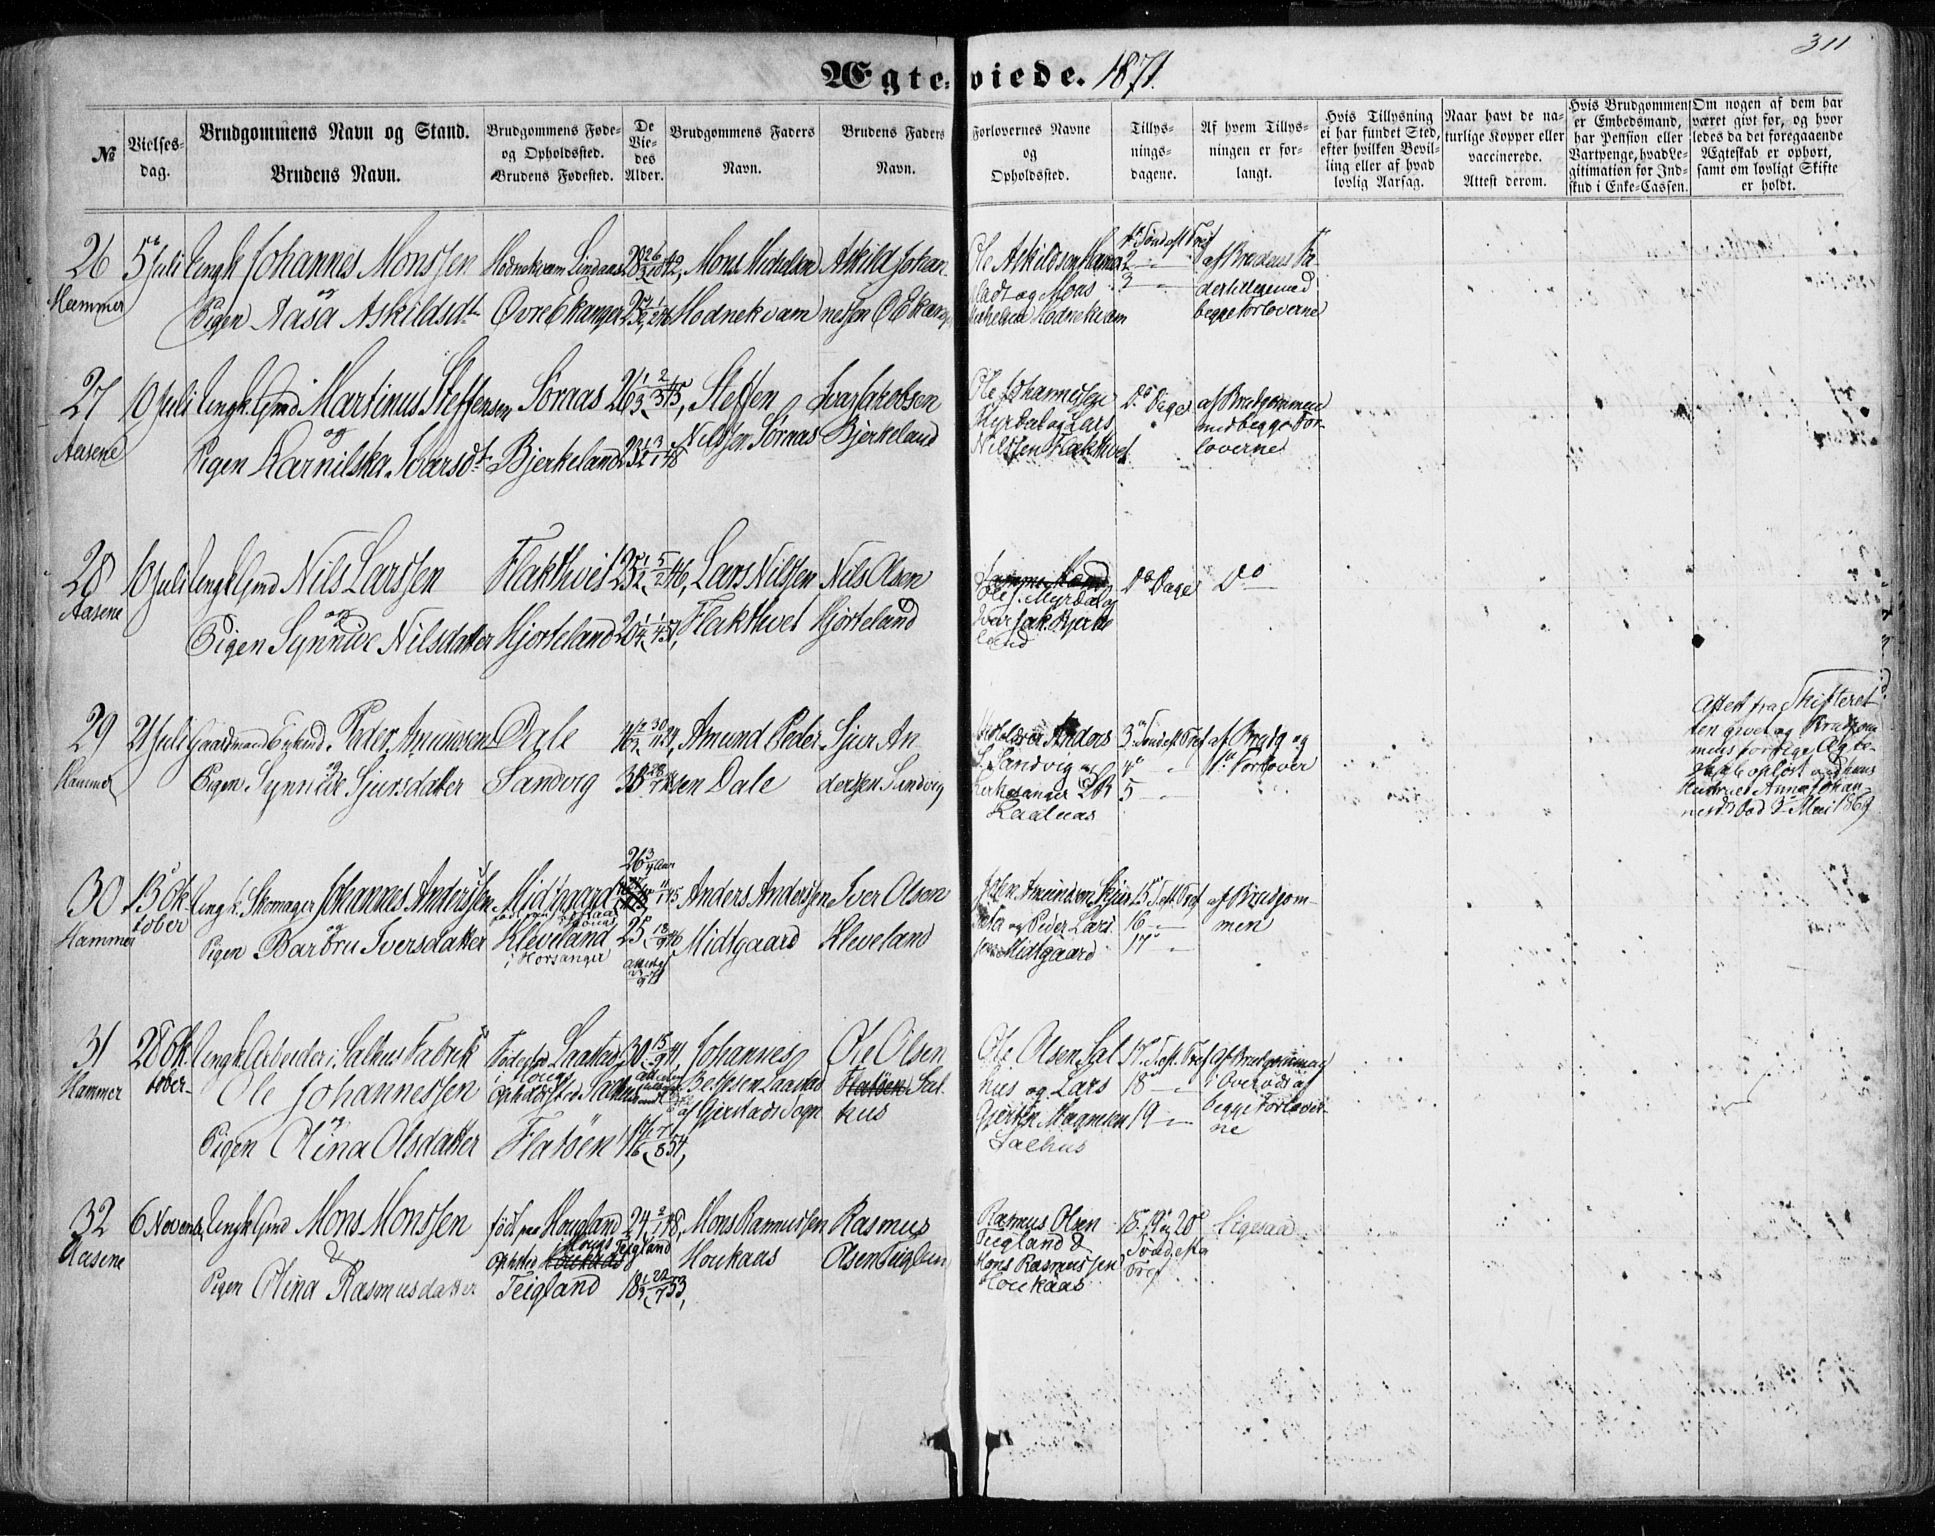 311
Ægteviede. 1871.
No
Vielses-
dag.
Brudgommens Navn og Stand.
Brudens Navn.
Brudgommens Føde-
og Opholdssted.
Brudens Fødested.
De
Vie-
des
Alder.
Brudgommens Faders
Navn.
Brudens Faders
Navn.
Forlovernes Navne
og
Opholdssted.
Tillys-
nings-
dagene.
Af hvem Tillys-
ningen er for-
langt.
Hvis Tillysning
ei har fundet Sted,
efter hvilken Bevil-
ling eller af hvad
lovlig Aarsag.
Naar havt de na-
turlige Kopper eller
vaccinerede.
Attest derom.
Hvis Brudgommen
er Embedsmand,
har Pension eller
Vartpenge, hvad Le-
gitimation for Ind-
skud i Enke-Cassen.
Om nogen af dem har
været givt før, og hvor
ledes da det foregaaende
Ægteskab er ophørt,
samt om lovligt Skifte
er holdt.
26
Hammer
5 Juli
Ungk Johannes Monssen
og
Pigen Aasa Askildsdt
Hodnekvam Lindaas
Øvre Ekanger
Mons Mikkelsen
Hodnekvam
Askild Johan
nessen Ø Ekanger
Ole Askildsen Hamer
og Mons
Hodnekvam
2
3
af Brudens Fa-
der tilligemed
begge Forloverne
27
Aasene
10 Juli
Ungk. Gmd Martinus Steffensen
og
Pigen Karnilska Ivarsdt
Soraas
Bjerkeland
Steffen
Nilssen Soraas
Ivar Jakobsen
Bjerkeland
Ole Johannessen
Myrdal og Lars
Nilssen Flakthvet
Do Dage
af Brudgommen
med begge For-
loverne
28
Aasene
10 Juli
Ungk Gmd Nils Larssen
og
Pigen Synnive Nilsdatter
Flakthvet
Hjorteland
Lars Nilssen
Flakthvet
Nils Olsen
Hjorteland
Samme Mænd
Ole J. Myrdal og
Ivar Jak. Bjerke
land
Do Dage
Do
29
Hammer
21 Juli
Gaardmand Enkemd. Peder Amundsen
og
Pigen Synneve Sjursdatter
Dale
Sandvig
Amund Peder
sen Dale
Sjur An
derssen Sandvig
Anders
S. Sandvig og
Kirkesanger
Kaalaas
3 Sønd. eft Tref
4
5
af Brudg og
1ste Forlover
Attest fra Skifteret
ten givet og Brudgom
mens forrige Ægte-
skab opløst ved hans
Hustrues Anna Johan
nesd. Død Mai 1869
30
Hammer
13 Ok-
tober
Ungk. Skomager Johannes Anderssen
og
Pigen Barbru Iversdatter
Midtgaard
Kleveland
i Horsanger
25
Anders Anderssen
Midtgaard
Iver Olson
Kleveland
John Amundsen
og Peder Lars
sen Midtgaard
15 S. eft. Tref
16
17
af Brudgom-
men
31
Hammer
28 Ok-
tober
Ungk Arbeider i Salhus Fabrik
Ole Johannessen
og
Pigen Olina Olsdatter
Fødested Laastad
Opholdssted Salhus
Flatøen
Johannes
Laastad
af Gjerstads Sogn
Ole Olsen
Flatøen Sal-
hus
Ole Olsen Sal
hus og Lars
Gjertin Magnesen
Salhus
17 S. eft. Tref
18
19
af Brudgommen
i Overvær af
begge Forlover-
ne
32
Aasene
6 Novemb
Ungk Gmd Mons Monssen
&
Pigen Olina Rasmusdatter
født paa Hougland
Opholdssted Houkaas Teigland
Teigland
Mons Rasmussen
Houkaas
Rasmus
Olsen Teiglan
Rasmus Olsen
Teigland &
Mons Rasmussen
Houkaas
18. 19 og 20
Sønd. efter
Tref
Ligesaa